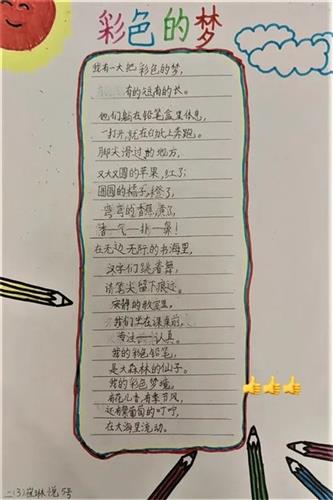 彩色的梦
我有一大把彩色的梦,
有的短有的长。
他们躺在铅笔盒里休息,
一打开,就在白纸上奔跑。
脚尖滑过的地方,
又大又圆的苹果,红了;
圆圆的橘子,橙了,
弯弯的香蕉,黄了,
香—气—扑—鼻!
在无边无际的书海里,
汉字们跳着舞,
请笔尖留下痕迹。
安静的教室里,
我们坐在课桌前,
专注——认真。
我的彩色铅笔,
是大森林的仙子。
我的彩色梦境,
有花儿香,有季节风,
还有紫葡萄的叮咛,
在大海里流动。
二(3)崔琳说 5号